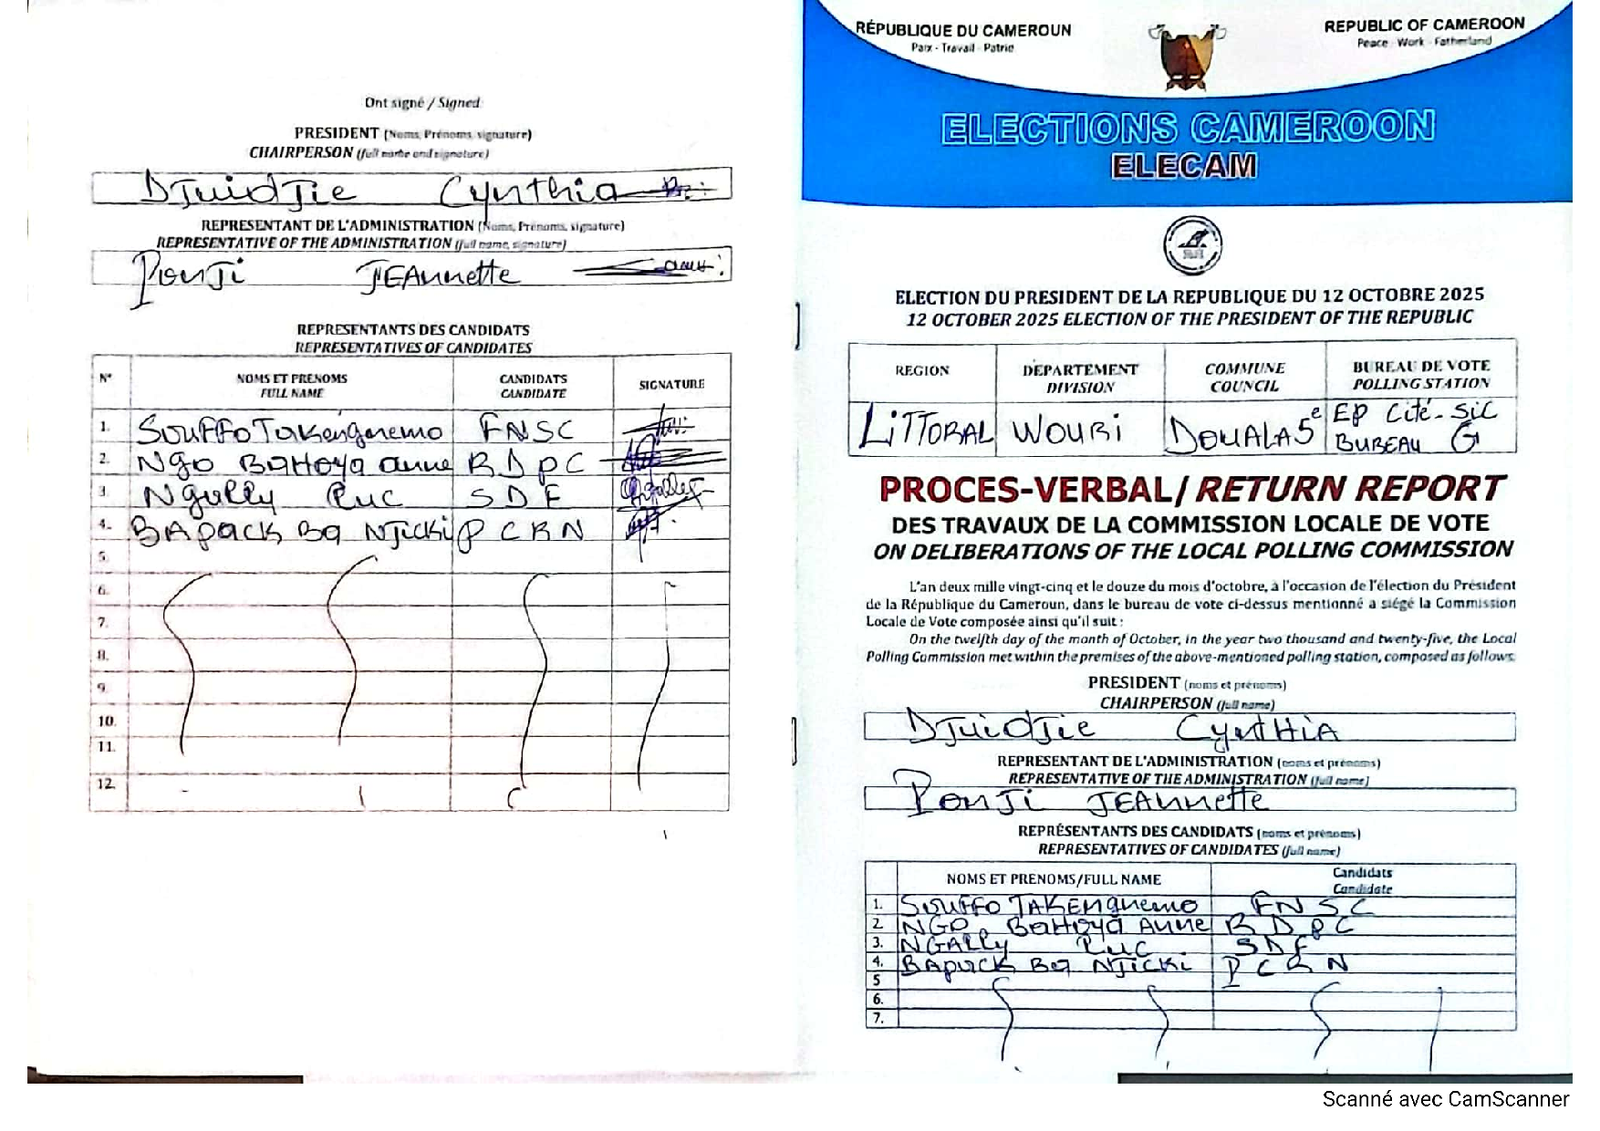 Ont signé / Signed
PRESIDENT (Noms, Prénoms, signature)
CHAIRPERSON (full name and signature)
DJuidJie Cynthia
REPRESENTANT DE L'ADMINISTRATION (Noms, Prénoms, signature)
REPRESENTATIVE OF THE ADMINISTRATION (full name, signature)
PonJi JEAnnette
REPRESENTANTS DES CANDIDATS
REPRESENTATIVES OF CANDIDATES
N° NOMS ET PRENOMS CANDIDATS SIGNATURE
FULL NAME CANDIDATE
1. Souffo Takengnemo FNSC
2. Ngo BaHoya anne RDPC
3. Ngally Luc SDF
4. BApack Ba NJicki PCRN
5.
6.
7.
8.
9.
10.
11.
12.
RÉPUBLIQUE DU CAMEROUN
Paix - Travail - Patrie
REPUBLIC OF CAMEROON
Peace - Work - Fatherland
ELECTIONS CAMEROON
ELECAM
ELECTION DU PRESIDENT DE LA REPUBLIQUE DU 12 OCTOBRE 2025
12 OCTOBER 2025 ELECTION OF THE PRESIDENT OF THE REPUBLIC
REGION DÉPARTEMENT COMMUNE BUREAU DE VOTE
DIVISION COUNCIL POLLING STATION
LiTTORAL WOURI DOUALA 5e EP Cité-SiC
BUREAU G
PROCES-VERBAL/ RETURN REPORT
DES TRAVAUX DE LA COMMISSION LOCALE DE VOTE
ON DELIBERATIONS OF THE LOCAL POLLING COMMISSION
L'an deux mille vingt-cinq et le douze du mois d'octobre, à l'occasion de l'élection du Président
de la République du Cameroun, dans le bureau de vote ci-dessus mentionné a siégé la Commission
Locale de Vote composée ainsi qu'il suit :
On the twelfth day of the month of October, in the year two thousand and twenty-five, the Local
Polling Commission met within the premises of the above-mentioned polling station, composed as follows:
PRESIDENT (noms et prénoms)
CHAIRPERSON (full name)
DJuidJie CyntHiA
REPRESENTANT DE L'ADMINISTRATION (noms et prénoms)
REPRESENTATIVE OF THE ADMINISTRATION (full name)
PonJi JEAnnette
REPRÉSENTANTS DES CANDIDATS (noms et prénoms)
REPRESENTATIVES OF CANDIDATES (full name)
NOMS ET PRENOMS/FULL NAME Candidats
Candidate
1. Souffo TAKENgnemo FNSC
2. NGO BaHoya Anne RDPC
3. NGAlly Luc SDF
4. BApack Ba NJicki PCRN
5
6.
7.
Scanné avec CamScanner